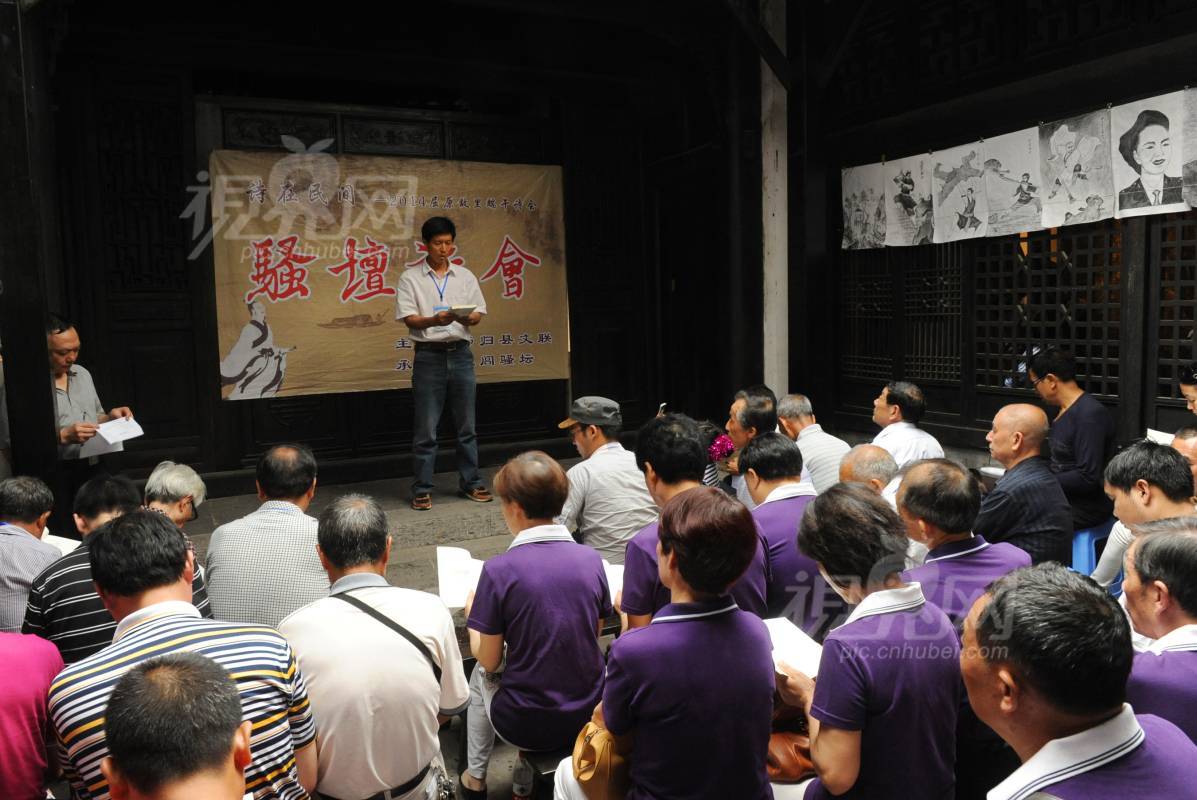 诗在民间——2014屈原故里端午诗会
骚壇 會
主 归县文联
承 骚坛
视 网
pic.cnhubei.com
pic.cnhubei.com